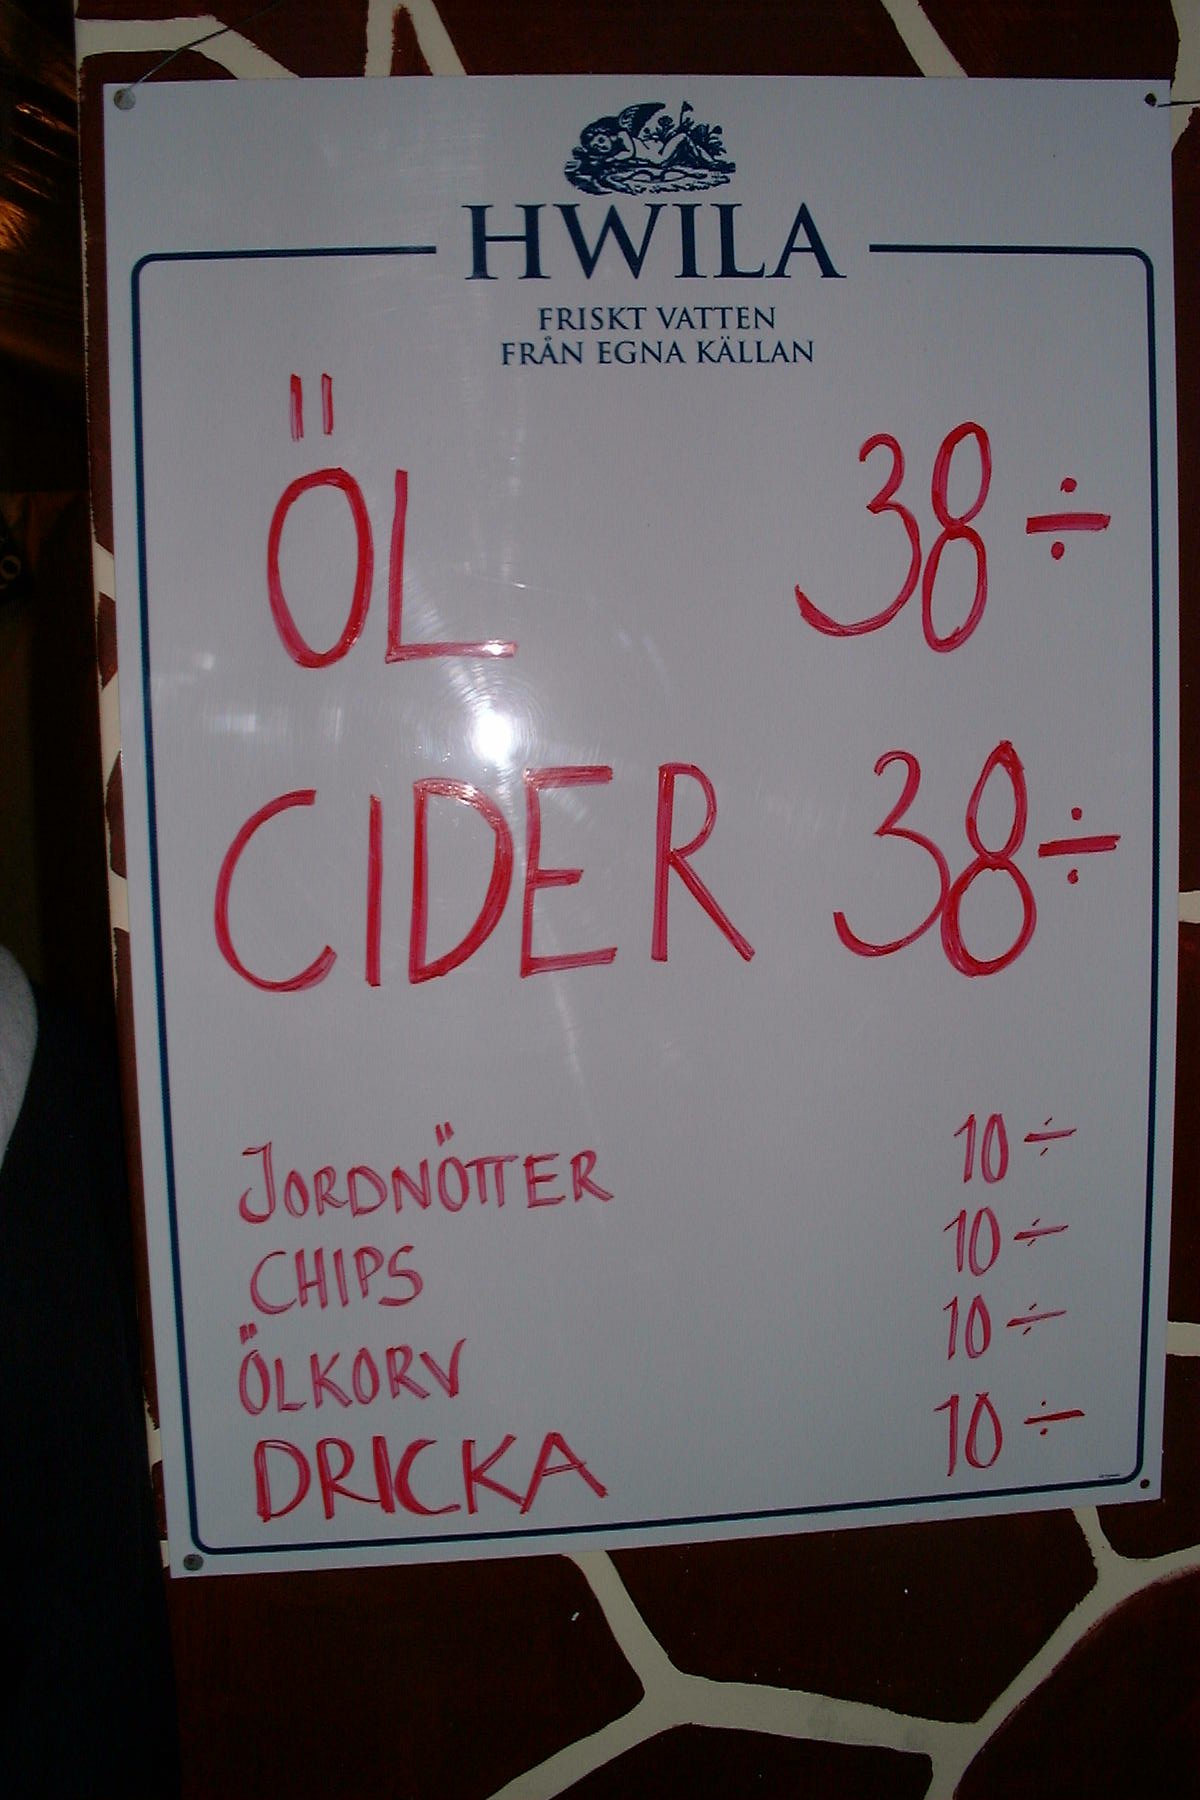 HWILA
FRISKT VATTEN
FRÅN EGNA KÄLLAN
ÖL 38 ÷
CIDER 38 ÷
JORDNÖTTER 10 ÷
CHIPS 10 ÷
ÖLKORV 10 ÷
DRICKA 10 ÷